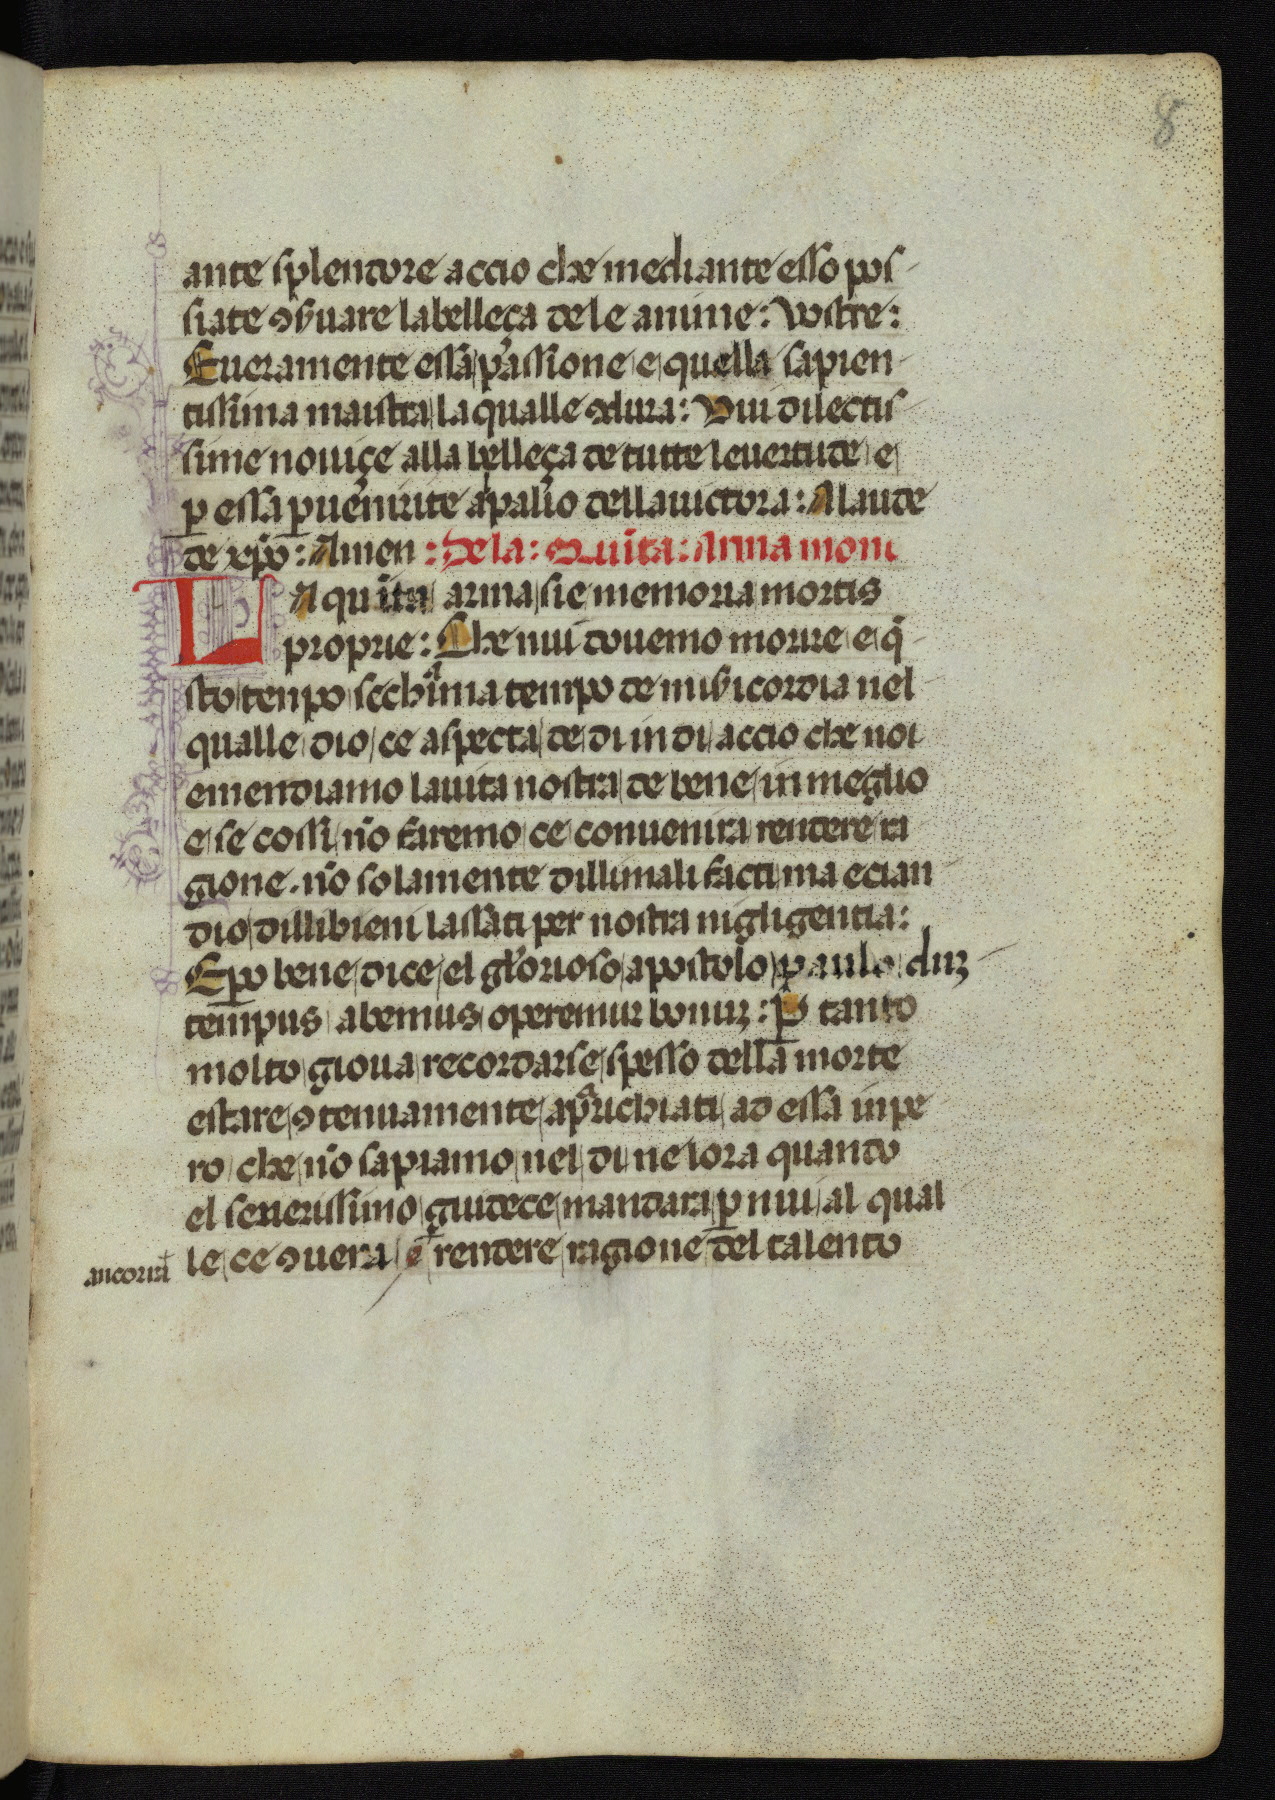 8
ante splendore accio che mediante esso pos-
siate ꝯẜuare la belleça de le anime: vostre:
E ueramente essa passione e quella sapien-
tissima maistra la qualle ꝯdura: Vui dilectis-
sime nouiçe alla belleça de tutte le uertude e
ꝑ essa ꝑuenirite a palio della uictora: A laude
de xp̄o: Amen: De la: Quīta: Arma
LA quīta arma sie memoria mortis
proprie: Che nui douemo morire e q̄-
sto tenpo sechīama tempo de miẜicordia nel
qualle dio ce aspecta de di in di accio che noi
emendiamo la uita nostra de bene in meglio
e se cossi nō faremo ce conuenira rendere ra
gione. nō solamente dilli mali facti ma ecian
dio dilli bieni lassati per nostra nigligentia:
E ꝑo bene dice el glorioso apostolo paulo duꝫ
tempus abemus operemur bonuꝫ: P tanto
molto gioua recordarse spesso della morte
e stare ꝯtenuamente apͣrichiati ad essa inpe
ro che nō sapiamo nel di ne lora quando
el seuerissimo giudece mandara ꝑ nui al qual
le ce ꝯuera rendere ragione del talento
ancorra